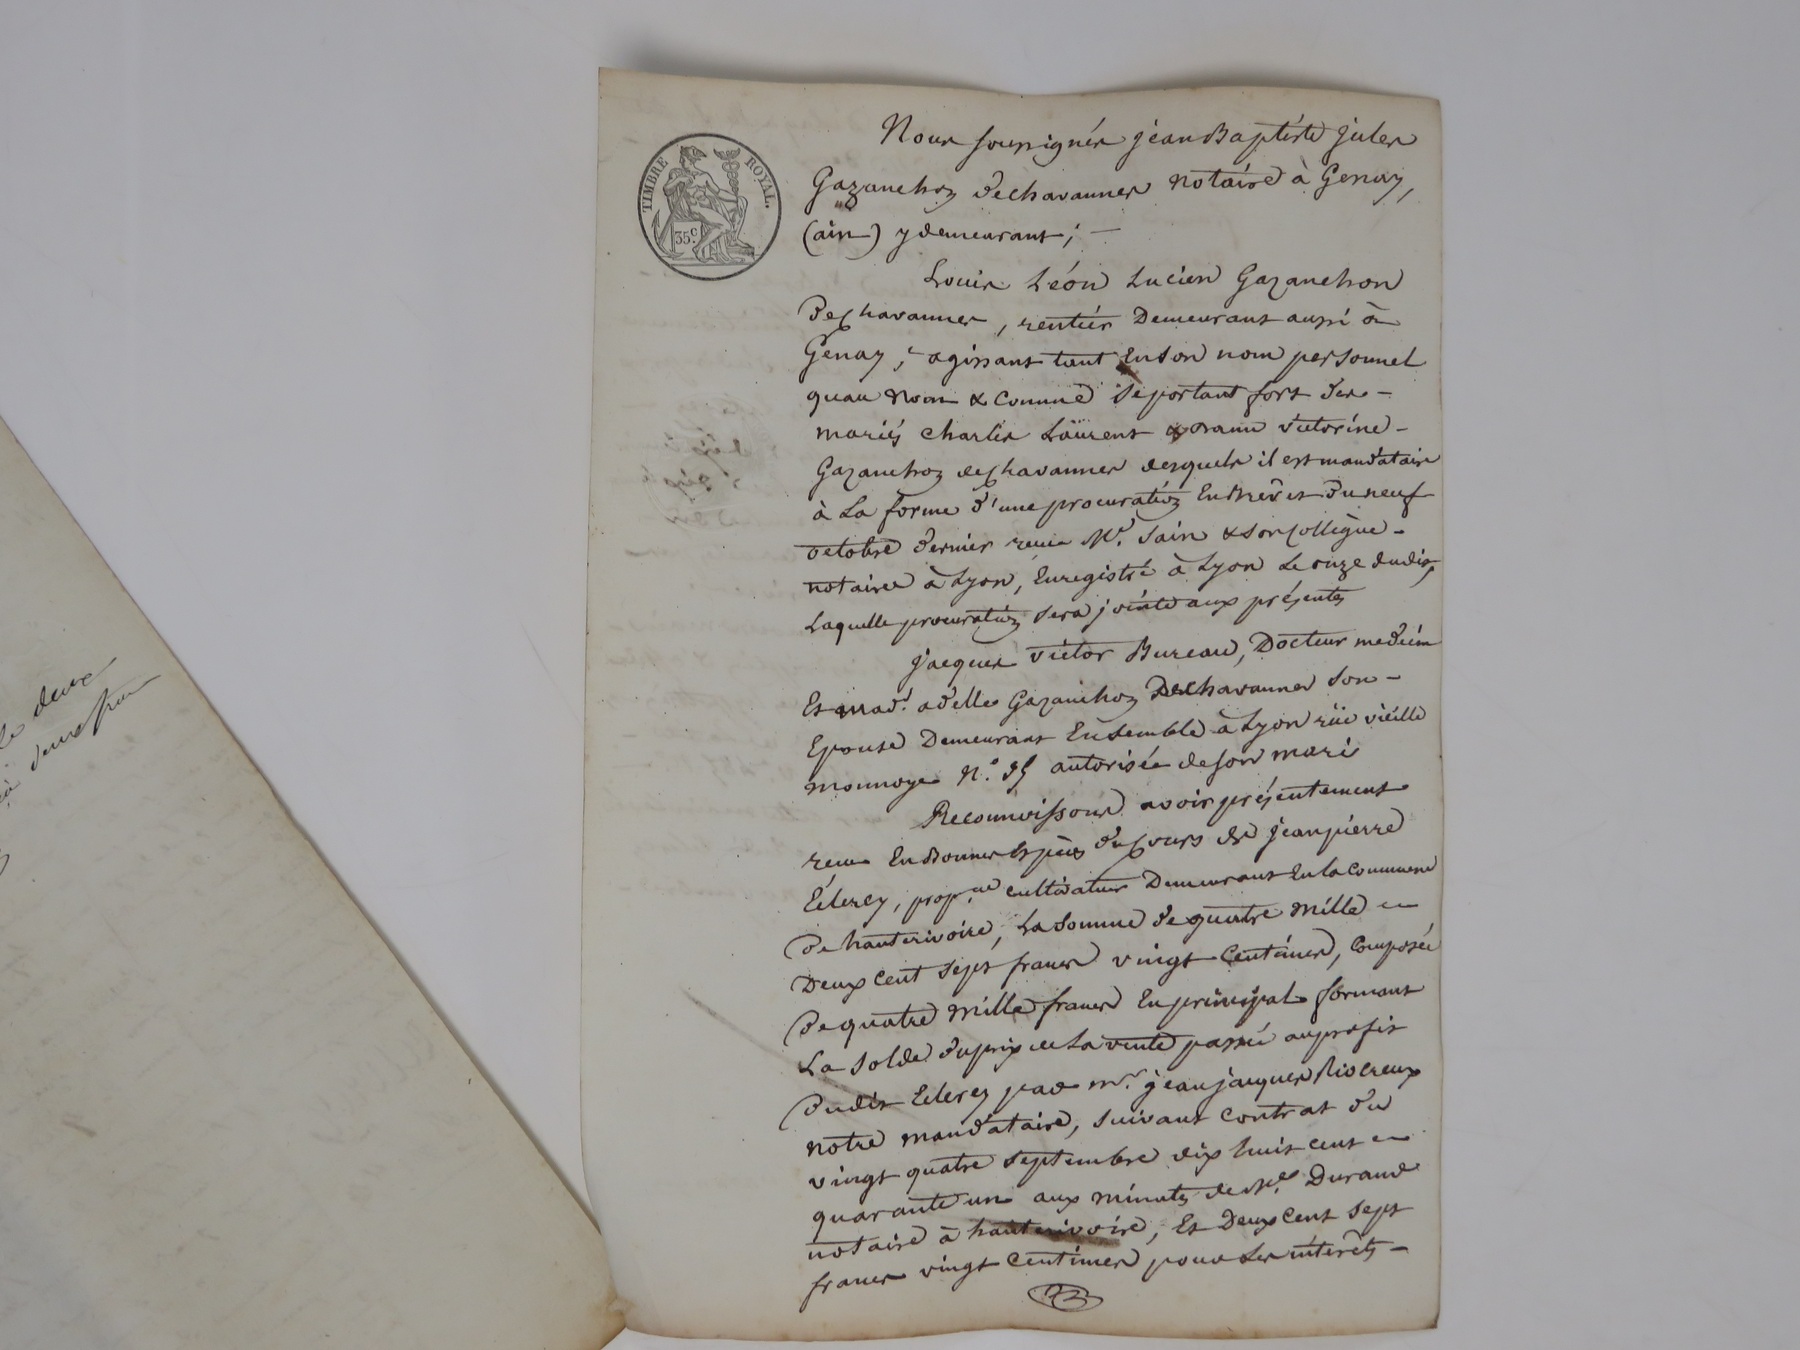 TIMBRE ROYAL.
35c
Nous soussignés jean Baptiste jules
Gazanchon deschavannes notaire à Genay,
(ain) y demeurant; —
Louis Léon Lucien Gazanchon
Deschavannes, rentier Demeurant aussi à
Genay, agissant tant En son nom personnel
quau nom & comme se portant fort des -
mariés charles Laurent & victorine -
Gazanchon deschavannes desquels il est mandataire
à La forme d'une procuration En Brevet Du neuf
octobre dernier reçue Me. Sain & son Collègue -
notaires à Lyon, Enregistré à Lyon Le onze dudit,
Laquelle procuration sera jointe aux présentes
jacques victor Bureau, Docteur medecin
Et mad. adelle Gazanchon Deschavannes son -
Epouse Demeurant Ensemble à Lyon rüe vieille
monnoye N.° autorisée de son mari
Reconnoissons avoir présentement
reçu En Bonnes Espèces du Cours de jean pierre
prop.re cultivateur Demeurant En la Commune
De hauterivoire, La somme de quatre mille
Deux Cent sept francs vingt Centimes, Composée
De quatre mille francs En principal formant
La solde du prix de La vente passée au profit
Dudit par mr. jean jacques Rivereux
notre mandataire, suivant contrat du
vingt quatre septembre dix huit cent
quarante un aux minutes de Me Durand
notaire à hauterivoire, Et Deux Cent Sept
francs vingt Centimes pour Les intérêts -
deux